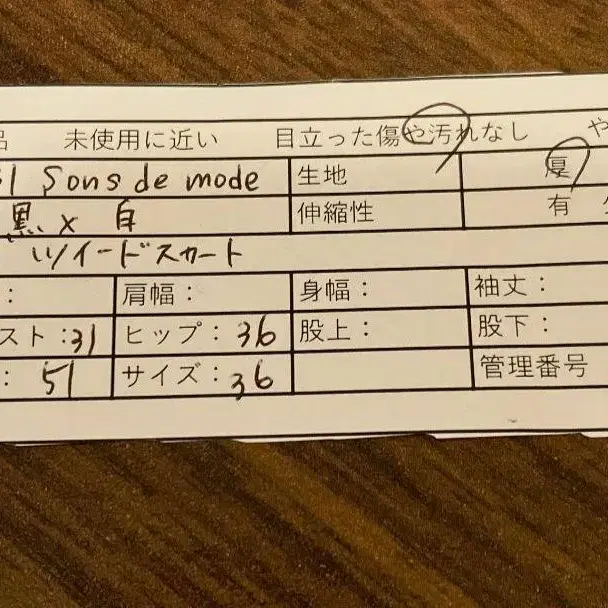 品 未使用に近い 目立った傷や汚れなし や
31 Sons de mode 生地 厚
黒 x 白 伸縮性 有
ツイードスカート
: 肩幅: 身幅: 袖丈:
スト:31 ヒップ:36 股上: 股下:
: 51 サイズ:36 管理番号